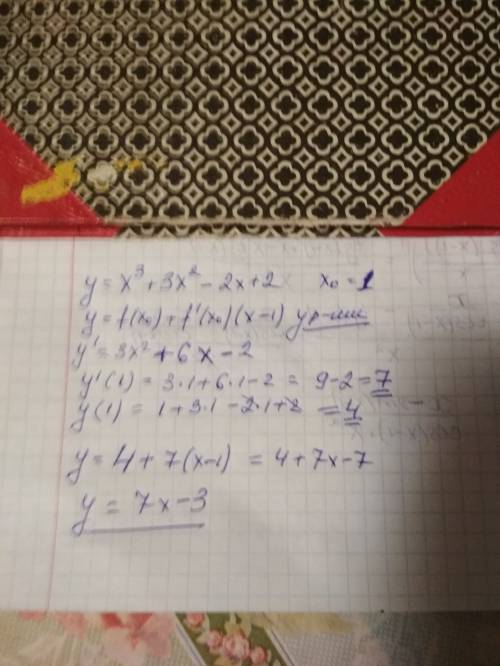 y = x³ + 3x² - 2x + 2 x₀ = 1
y = f(x₀) + f'(x₀)(x-1) ур-ние
y' = 3x² + 6x - 2
y'(1) = 3·1 + 6·1 - 2 = 9 - 2 = 7
y(1) = 1 + 3·1 - 2·1 + 2 = 4
y = 4 + 7(x-1) = 4 + 7x - 7
y = 7x - 3